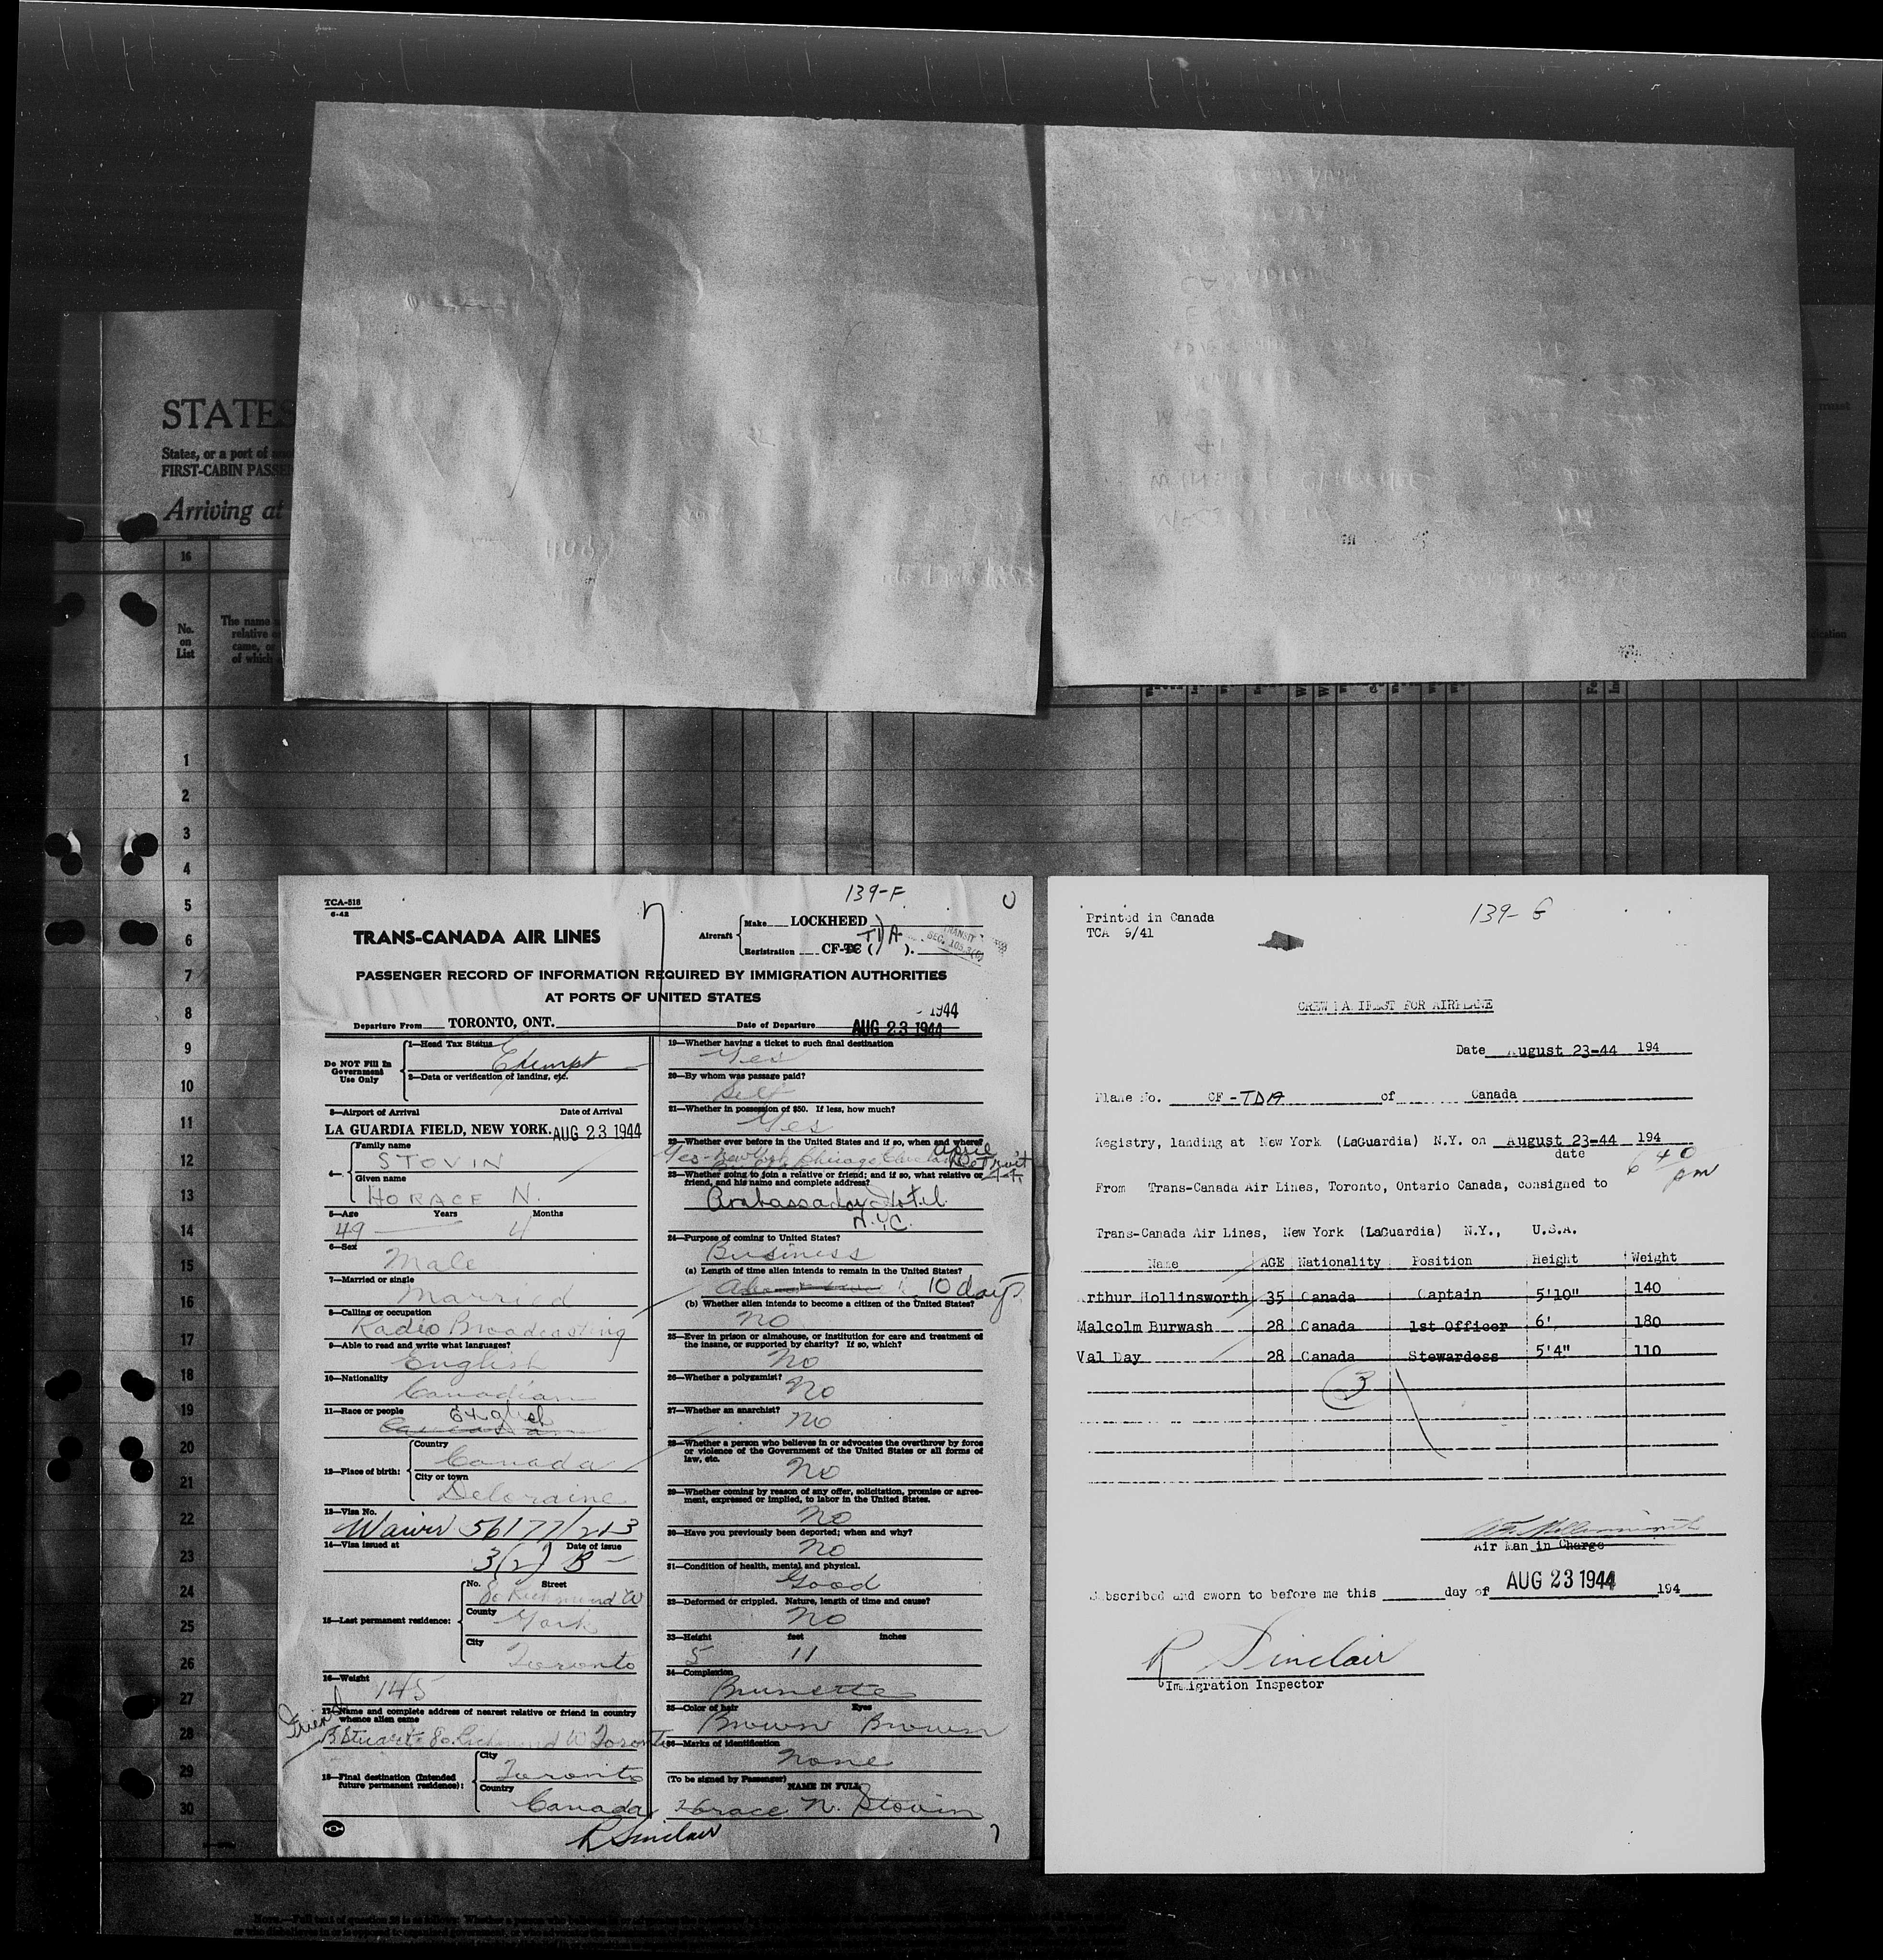 STATES
States, or a port of
FIRST-CABIN PASSEN
Arriving at
16
No.
on
List
The name
relative
came, or
of which
must
1
2
3
4
5
6
7
8
9
10
11
12
13
14
15
16
17
18
19
20
21
22
23
24
25
26
27
28
29
30
TCA-518
6-42
139-F
TRANS-CANADA AIR LINES
Aircraft
Make LOCKHEED
Registration CF-TC (TDA).
TRANSIT
SEC. 103.3(c)
PASSENGER RECORD OF INFORMATION REQUIRED BY IMMIGRATION AUTHORITIES
AT PORTS OF UNITED STATES
1944
Departure From TORONTO, ONT.
Date of Departure AUG 23 1944
Do NOT Fill In
Government
Use Only
1—Head Tax Status
Exempt
2—Data or verification of landing, etc.
3—Airport of Arrival Date of Arrival
LA GUARDIA FIELD, NEW YORK. AUG 23 1944
4—
Family name
STOVIN
Given name
HORACE N.
5—Age Years Months
49 4
6—Sex
Male
7—Married or single
Married
8—Calling or occupation
Radio Broadcasting
9—Able to read and write what languages?
English
10—Nationality
Canadian
11—Race or people English
Canadian
12—Place of birth:
Country
Canada
City or town
Deloraine
13—Visa No.
Waiver 56177/213
14—Visa issued at Date of issue
3(2) B
15—Last permanent residence:
No. Street
80 Richmond W
County
York
City
Toronto
16—Weight
145
17—Name and complete address of nearest relative or friend in country
whence alien came
Friend
B Stuart 80 Richmond W Toronto
18—Final destination (Intended
future permanent residence):
City
Toronto
Country
Canada
19—Whether having a ticket to such final destination
Yes
20—By whom was passage paid?
Self
21—Whether in possession of $50. If less, how much?
Yes
22—Whether ever before in the United States and if so, when and where?
Yes - New York Chicago Cleveland Detroit
April 44
23—Whether going to join a relative or friend; and if so, what relative or
friend, and his name and complete address?
Ambassador Hotel
N.Y.C.
24—Purpose of coming to United States?
Business
(a) Length of time alien intends to remain in the United States?
10 days
(b) Whether alien intends to become a citizen of the United States?
No
25—Ever in prison or almshouse, or institution for care and treatment of
the insane, or supported by charity? If so, which?
No
26—Whether a polygamist?
No
27—Whether an anarchist?
No
28—Whether a person who believes in or advocates the overthrow by force
or violence of the Government of the United States or all forms of
law, etc.
No
29—Whether coming by reason of any offer, solicitation, promise or agree-
ment, expressed or implied, to labor in the United States.
No
30—Have you previously been deported; when and why?
No
31—Condition of health, mental and physical.
Good
32—Deformed or crippled. Nature, length of time and cause?
No
33—Height feet inches
5 11
34—Complexion
Brunette
35—Color of hair Eyes
Brown Brown
36—Marks of identification
None
(To be signed by Passenger)
NAME IN FULL
Horace N. Stovin
R Sinclair
Printed in Canada
TCA 9/41
139-G
CREW MANIFEST FOR AIRPLANE
Date August 23-44 194
Plane No. CF-TDA of Canada
Registry, landing at New York (LaGuardia) N.Y. on August 23-44 194
date
6 40 pm
From Trans-Canada Air Lines, Toronto, Ontario Canada, consigned to
Trans-Canada Air Lines, New York (LaGuardia) N.Y., U.S.A.
Name AGE Nationality Position Height Weight
Arthur Hollinsworth 35 Canada Captain 5'10" 140
Malcolm Burwash 28 Canada 1st Officer 6' 180
Val Day 28 Canada Stewardess 5'4" 110
3
Air Man in Charge
Subscribed and sworn to before me this day of AUG 23 1944 194
R Sinclair
Immigration Inspector